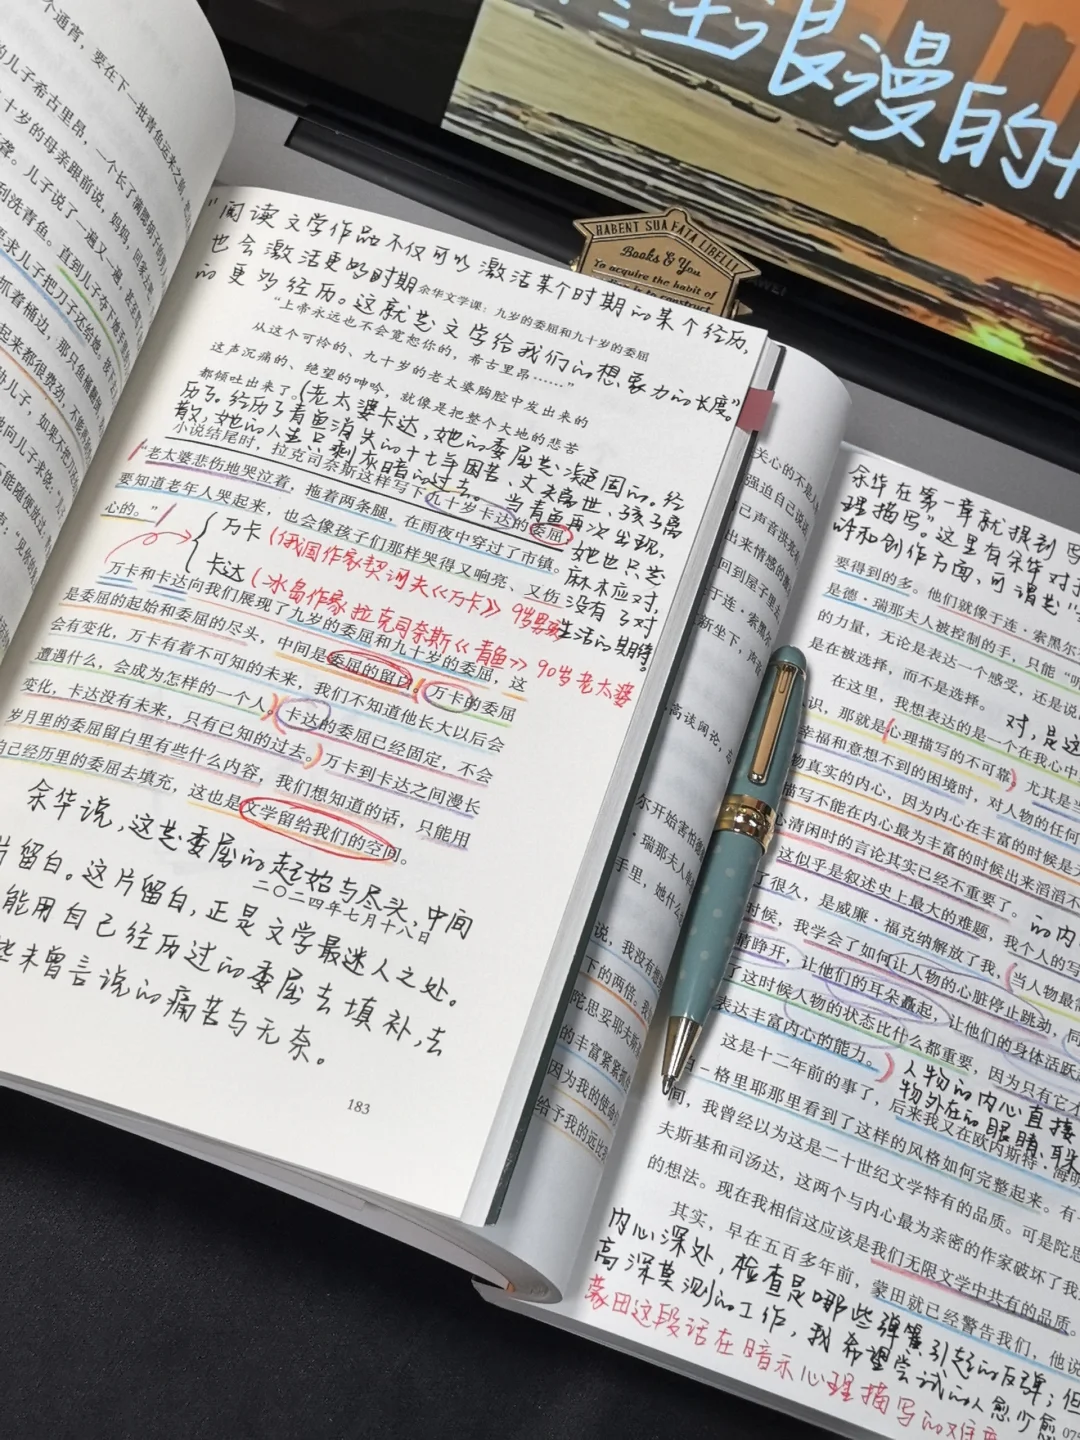 个通宵，要在下一批青鱼运来之前
的儿子希古里昂，一个长了满腮胡子
十岁的母亲跟前说，妈妈，回家去吧
聋。儿子说了一遍又一遍
刮洗青鱼。直到儿子夺下她手里的
要求儿子把刀子还给她
抓着桶边，那只鱼桶
起来都很费劲，不能
协儿子，如果不把刀
他向儿子求饶
"阅读文学作品不仅可以激活某个时期的某个经历，
也会激活更多时期
的更多经历。这就是文学给我们的想象力的长度。"
余华文学课：九岁的委屈和九十岁的委屈
"上帝永远也不会宽恕你的，希古里昂……"
从这个可怜的、九十岁的老太婆胸腔中发出来的
这声沉痛的、绝望的呻吟，就像是把整个大地的悲苦
都倾吐出来了。
（老太婆卡达，她的委屈是凝固的。经
历了。经历了青鱼消失的十七年困苦、丈夫离世、孩子离
散，她的人生只剩灰暗的过去。当青鱼再次出现，
她也只是
麻木应对，
没有了对
生活的期待。
小说结尾时，拉克司奈斯这样写下九十岁卡达的委屈：
"老太婆悲伤地哭泣着，拖着两条腿，在雨夜中穿过了市镇。
要知道老年人哭起来，也会像孩子们那样哭得又响亮、又伤
心的。"
万卡（俄国作家契诃夫《万卡》9岁男孩
卡达（冰岛作家拉克司奈斯《青鱼》90岁老太婆
万卡和卡达向我们展现了九岁的委屈和九十岁的委屈，这
是委屈的起始和委屈的尽头，中间是委屈的留白。万卡的委屈
会有变化，万卡有着不可知的未来，我们不知道他长大以后会
遭遇什么，会成为怎样的一个人，卡达的委屈已经固定，不会
变化，卡达没有未来，只有已知的过去。万卡到卡达之间漫长
岁月里的委屈留白里有些什么内容，我们想知道的话，只能用
自己经历里的委屈去填充，这也是文学留给我们的空间。
二〇二四年七月十八日
余华说，这是委屈的起始与尽头，中间
片留白。这片留白，正是文学最迷人之处。
能用自己经历过的委屈去填补，去
些未曾言说的痛苦与无奈。
183
生浪漫的
HABENT SUA FATA LIBELLI
Books & You
To acquire the habit of
is to construct
关心的不是
强迫自己说
己声音洪亮
出来情感的
回到屋子里
于连·索黑
新坐下，声
高谈阔论，
尔开始害怕
·瑞那夫人
手里，她什么
说，我没有想
下的两倍。我
陀思妥耶夫斯
的丰富紧紧抓
因为我的使命
给予我的远比
余华在第一章就提到写
理描写"。这里有余华对
和创作方面，可谓是
要得到的多。他们就像于连·索黑尔
是德·瑞那夫人被控制的手，只能"听
的力量，无论是表达一个感受，还是说
是在被选择，而不是选择。
对，是这
在这里，我想表达的是一个在我心中
识，那就是心理描写的不可靠，尤其是当
幸福和意想不到的困境时，对人物的任何
物真实的内心，因为内心在丰富的时候是无
描写不能在内心最为丰富的时候出来滔滔不
心清闲时的言论其实已经不重要了。
这似乎是叙述史上最大的难题，我个人的写
的内
了很久，是威廉·福克纳解放了我，当人物最
时候，我学会了如何让人物的心脏停止跳动，同
睛睁开，让他们的耳朵矗起，让他们的身体活跃
了这时候人物的状态比什么都重要，因为只有它才
表达丰富内心的能力。
人物的内心直接
物外在的眼睛、耳
这是十二年前的事了，后来我又在欧内斯特·海明
白-格里耶那里看到了这样的风格如何完整起来。有一
间，我曾经以为这是二十世纪文学特有的品质。可是陀思
夫斯基和司汤达，这两个与内心最为亲密的作家破坏了我
的想法。现在我相信这应该是我们无限文学中共有的品质。
其实，早在五百多年前，蒙田就已经警告我们，他说
内心深处，检查是哪些弹簧引起的反弹；但
高深莫测的工作，我希望尝试的人愈少愈
蒙田这段话在暗示心理描写的难度